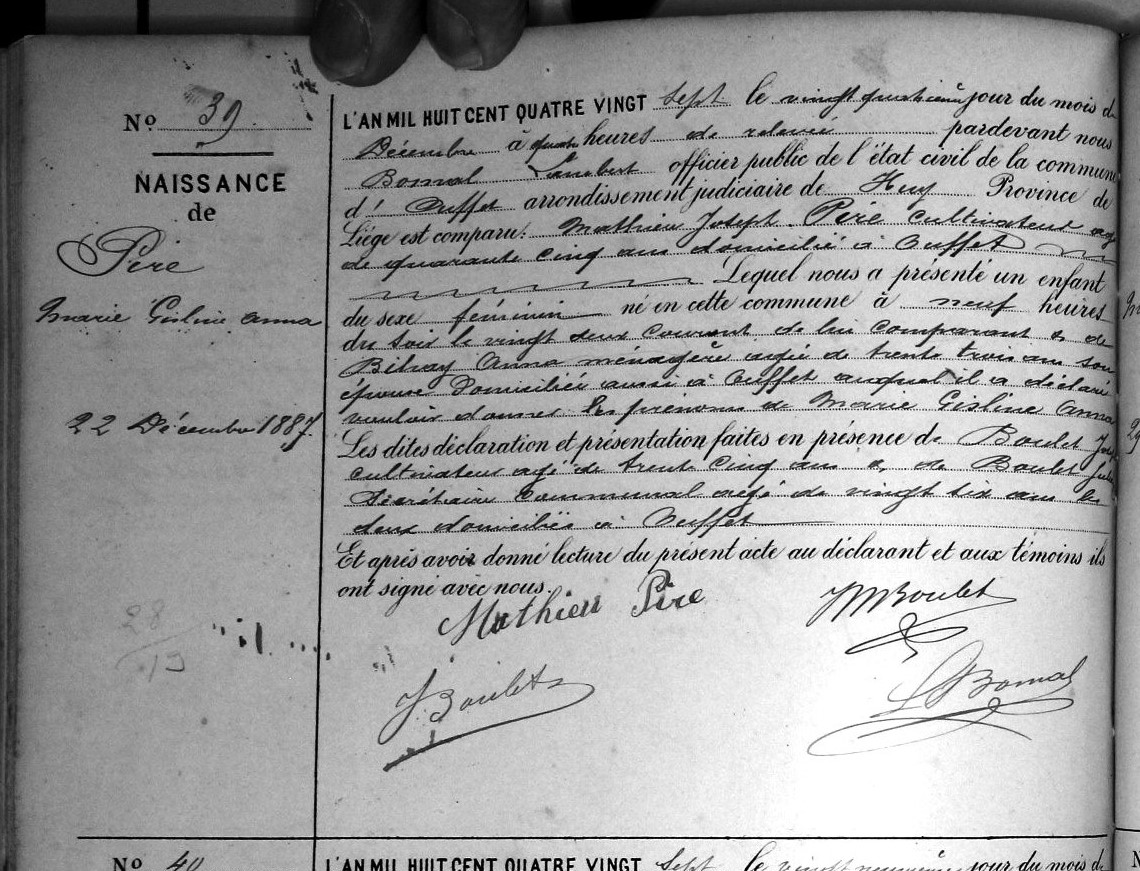 No 39
NAISSANCE
de
Pire
Marie Gisline Anna
22 Décembre 1887.
28
19
L'AN MIL HUIT CENT QUATRE VINGT Sept le vingt quatrième jour du mois de
Décembre à quatre heures de relevée pardevant nous
Bomal Lambert officier public de l'état civil de la commune
d' Ouffet arrondissement judiciaire de Huy Province de
Liége est comparu: Mathieu Joseph Pire cultivateur agé
de quarante cinq ans domicilié à Ouffet
Lequel nous a présenté un enfant
du sexe féminin né en cette commune à neuf heures
du soir le vingt deux courant de lui comparant & de
Bihay Anna ménagère agée de trente trois ans son
épouse domiciliée aussi à Ouffet auquel il a déclaré
vouloir donner les prénoms de Marie Gisline Anna
Les dites déclaration et présentation faites en présence de Boulet
cultivateur agé de trente cinq ans & de Boulet
Secrétaire communal agé de vingt six ans les
deux domiciliés à Ouffet
Et après avoir donné lecture du présent acte au déclarant et aux témoins ils
ont signé avec nous.
Mathieu Pire
Boulet
J. Boulet
L Bomal
No 40
L'AN MIL HUIT CENT QUATRE VINGT Sept le vingt neuvième jour du mois de